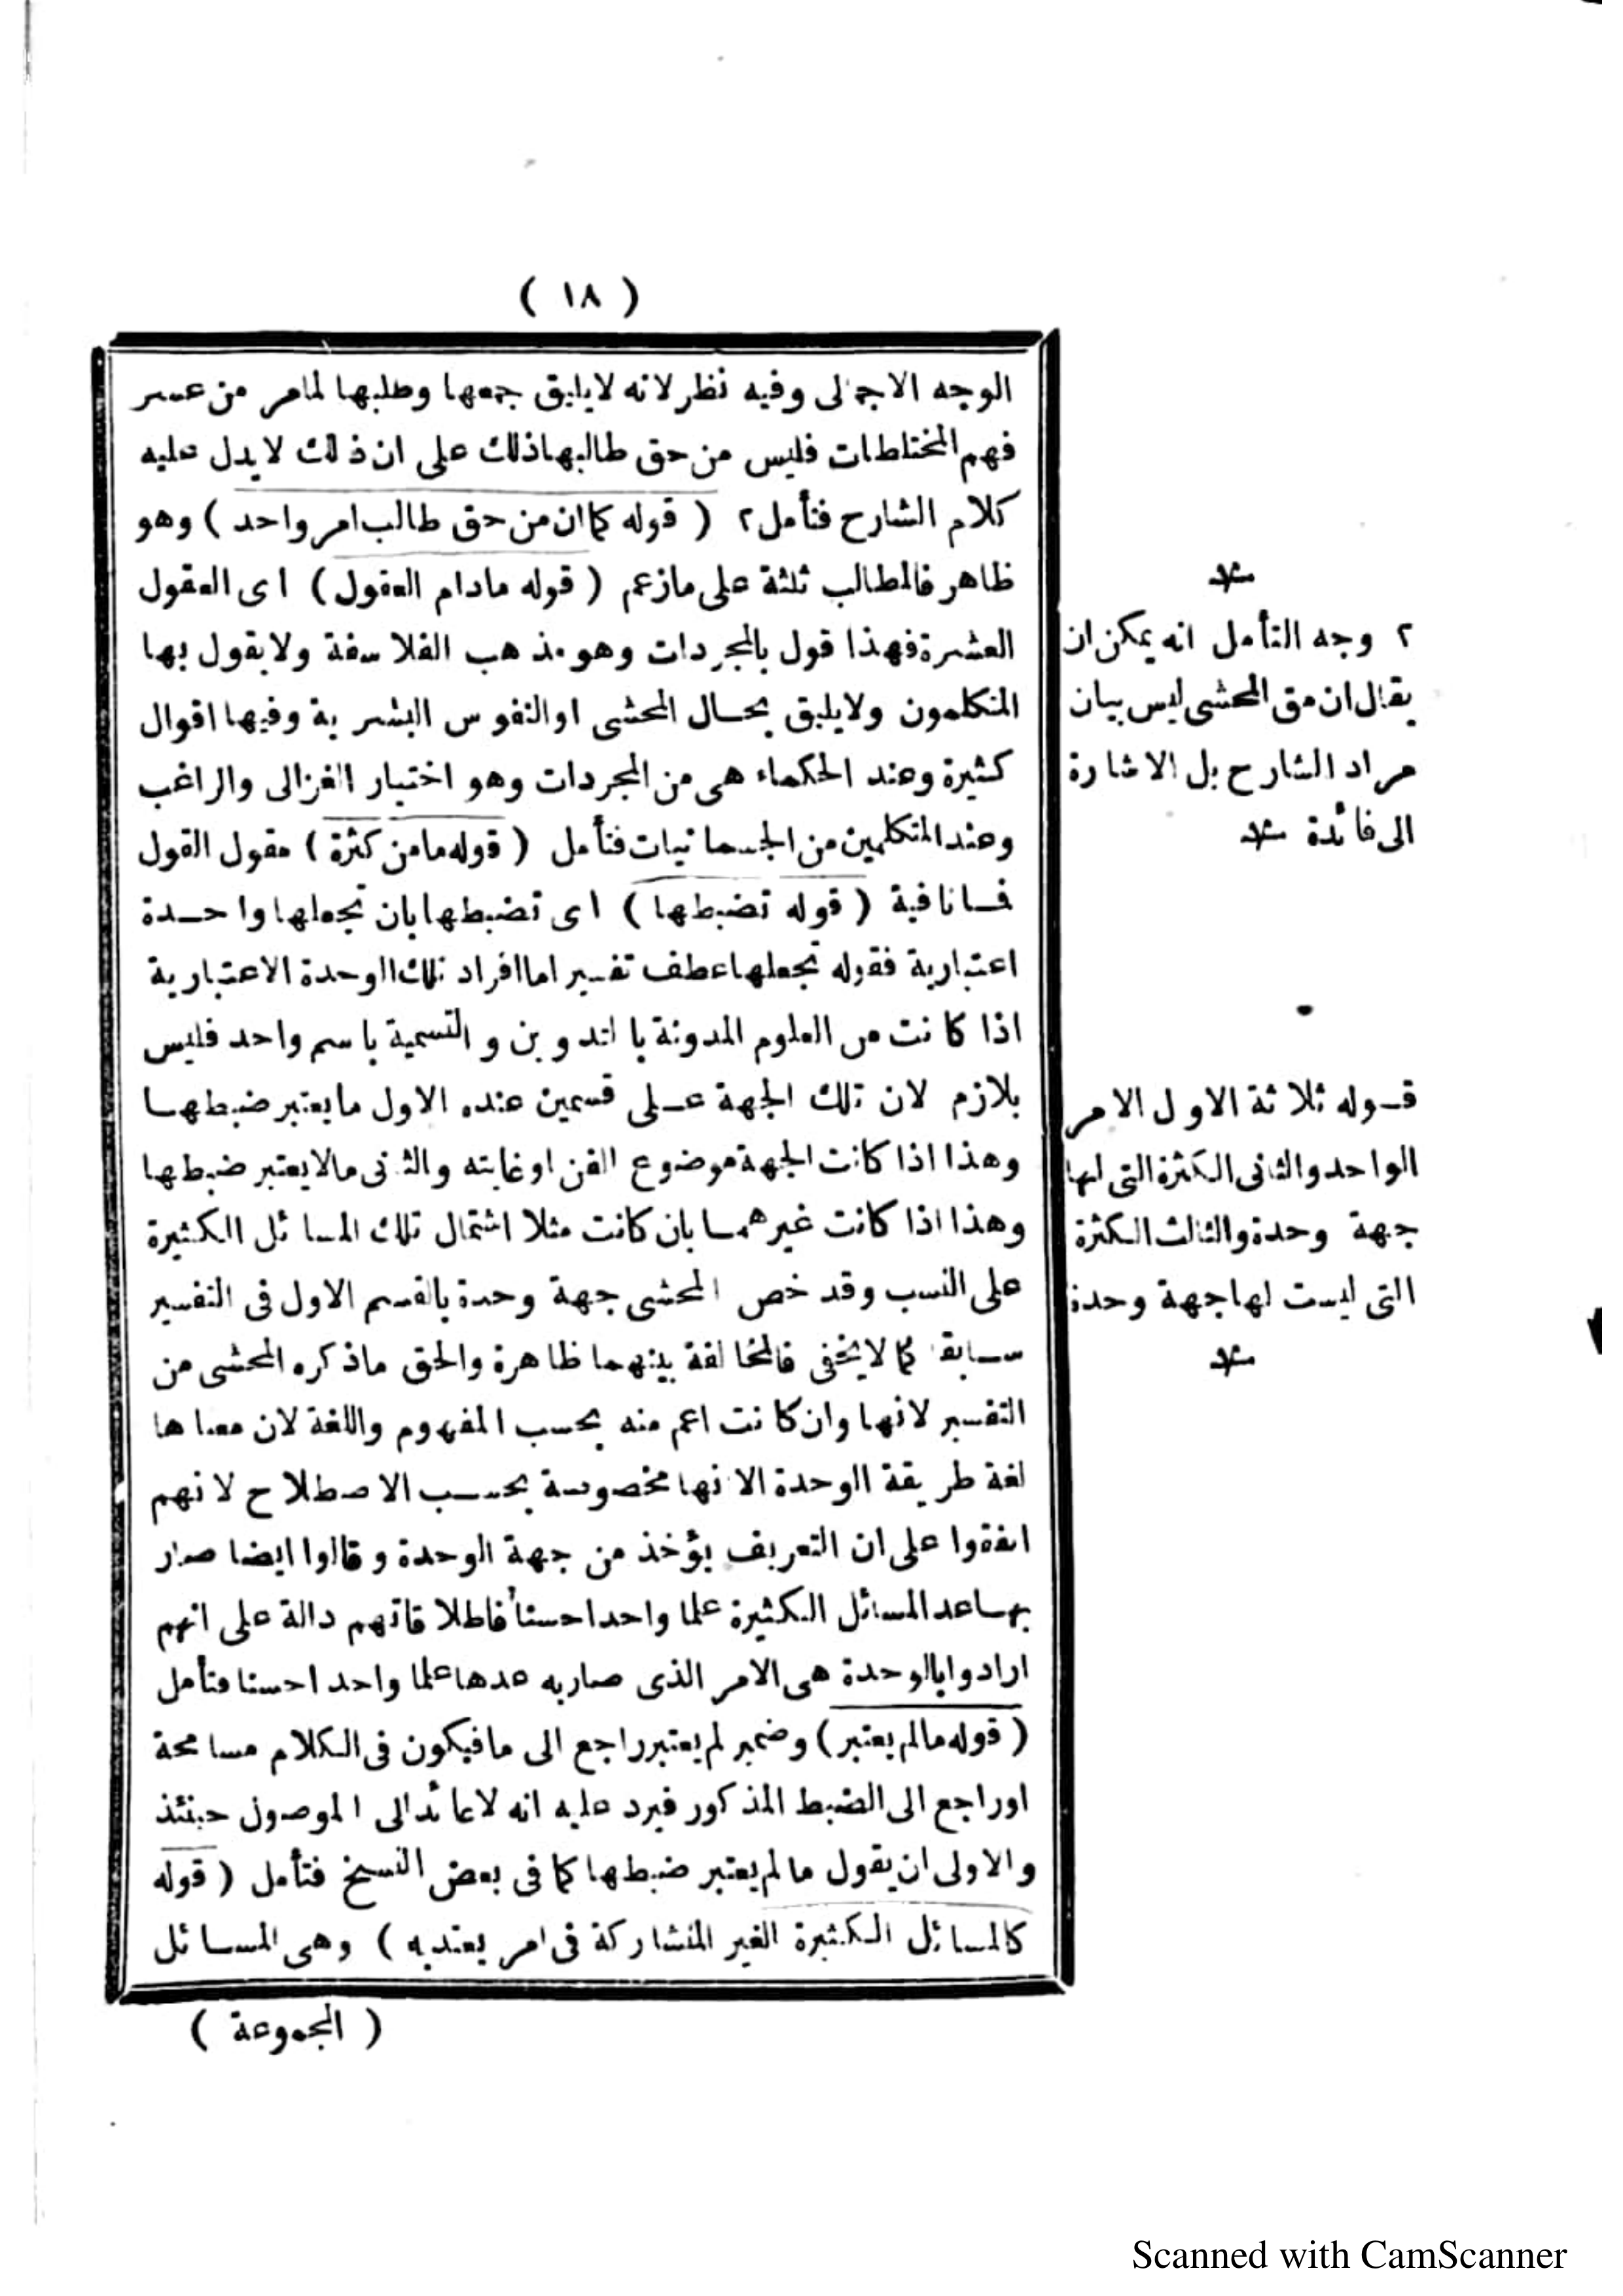 ( ١٨ )
الوجه الاجمالى وفيه نظر لانه لايليق جمعها وطلبها لمامر من عسر
فهم المختلطات فليس من حق طالبها ذلك على ان ذلك لايدل عليه
كلام الشارح فتأمل ٢ ( قوله كما ان من حق طالب امر واحد ) وهو
ظاهر فالمطالب ثلثة على مازعم ( قوله مادام العقول ) اى العقول
العشرة فهذا قول بالمجردات وهو مذهب الفلاسفة ولا يقول بها
المتكلمون ولايليق بحال المحشى او النفوس البشرية وفيها اقوال
كثيرة وعند الحكماء هى من المجردات وهو اختيار الغزالى والراغب
وعند المتكلمين من الجسمانيات فتأمل ( قوله مامن كثرة ) مقول القول
فما نافية ( قوله تضبطها ) اى تضبطها بان تجعلها واحدة
اعتبارية فقوله تجعلها عطف تفسير اما افراد تلك الوحدة الاعتبارية
اذا كانت من العلوم المدونة بالتدوين والتسمية باسم واحد فليس
بلازم لان تلك الجهة على قسمين عنده الاول مايعتبر ضبطها
وهذا اذا كانت الجهة موضوع الفن او غايته والثانى مالايعتبر ضبطها
وهذا اذا كانت غيرهما بان كانت مثلا اشتمال تلك المسائل الكثيرة
على النسب وقد خص المحشى جهة وحدة بالقسم الاول فى التفسير
سابقا كما لايخفى فالمخالفة بينهما ظاهرة والحق ماذكره المحشى من
التفسير لانها وان كانت اعم منه بحسب المفهوم واللغة لان معناها
لغة طريقة الوحدة الا انها مخصوصة بحسب الاصطلاح لانهم
اتفقوا على ان التعريف يؤخذ من جهة الوحدة وقالوا ايضا صار
بها عد المسائل الكثيرة علما واحدا حسنا فاطلاقاتهم دالة على انهم
ارادوا بالوحدة هى الامر الذى صار به عدها علما واحدا حسنا فتأمل
( قوله مالم يعتبر ) وضمير لم يعتبر راجع الى ما فيكون فى الكلام مسامحة
او راجع الى الضبط المذكور فيرد عليه انه لا عائد الى الموصول حينئذ
والاولى ان يقول مالم يعتبر ضبطها كما فى بعض النسخ فتأمل ( قوله
كالمسائل الكثيرة الغير المتشاركة فى امر يعتد به ) وهى المسائل
( المجموعة )
٢ وجه التأمل انه يمكن ان
يقال ان مق المحشى ليس بيان
مراد الشارح بل الاشارة
الى فائدة
قوله ثلاثة الاول الامر
الواحد والثانى الكثرة التى لها
جهة وحدة والثالث الكثرة
التى ليست لها جهة وحدة
Scanned with CamScanner